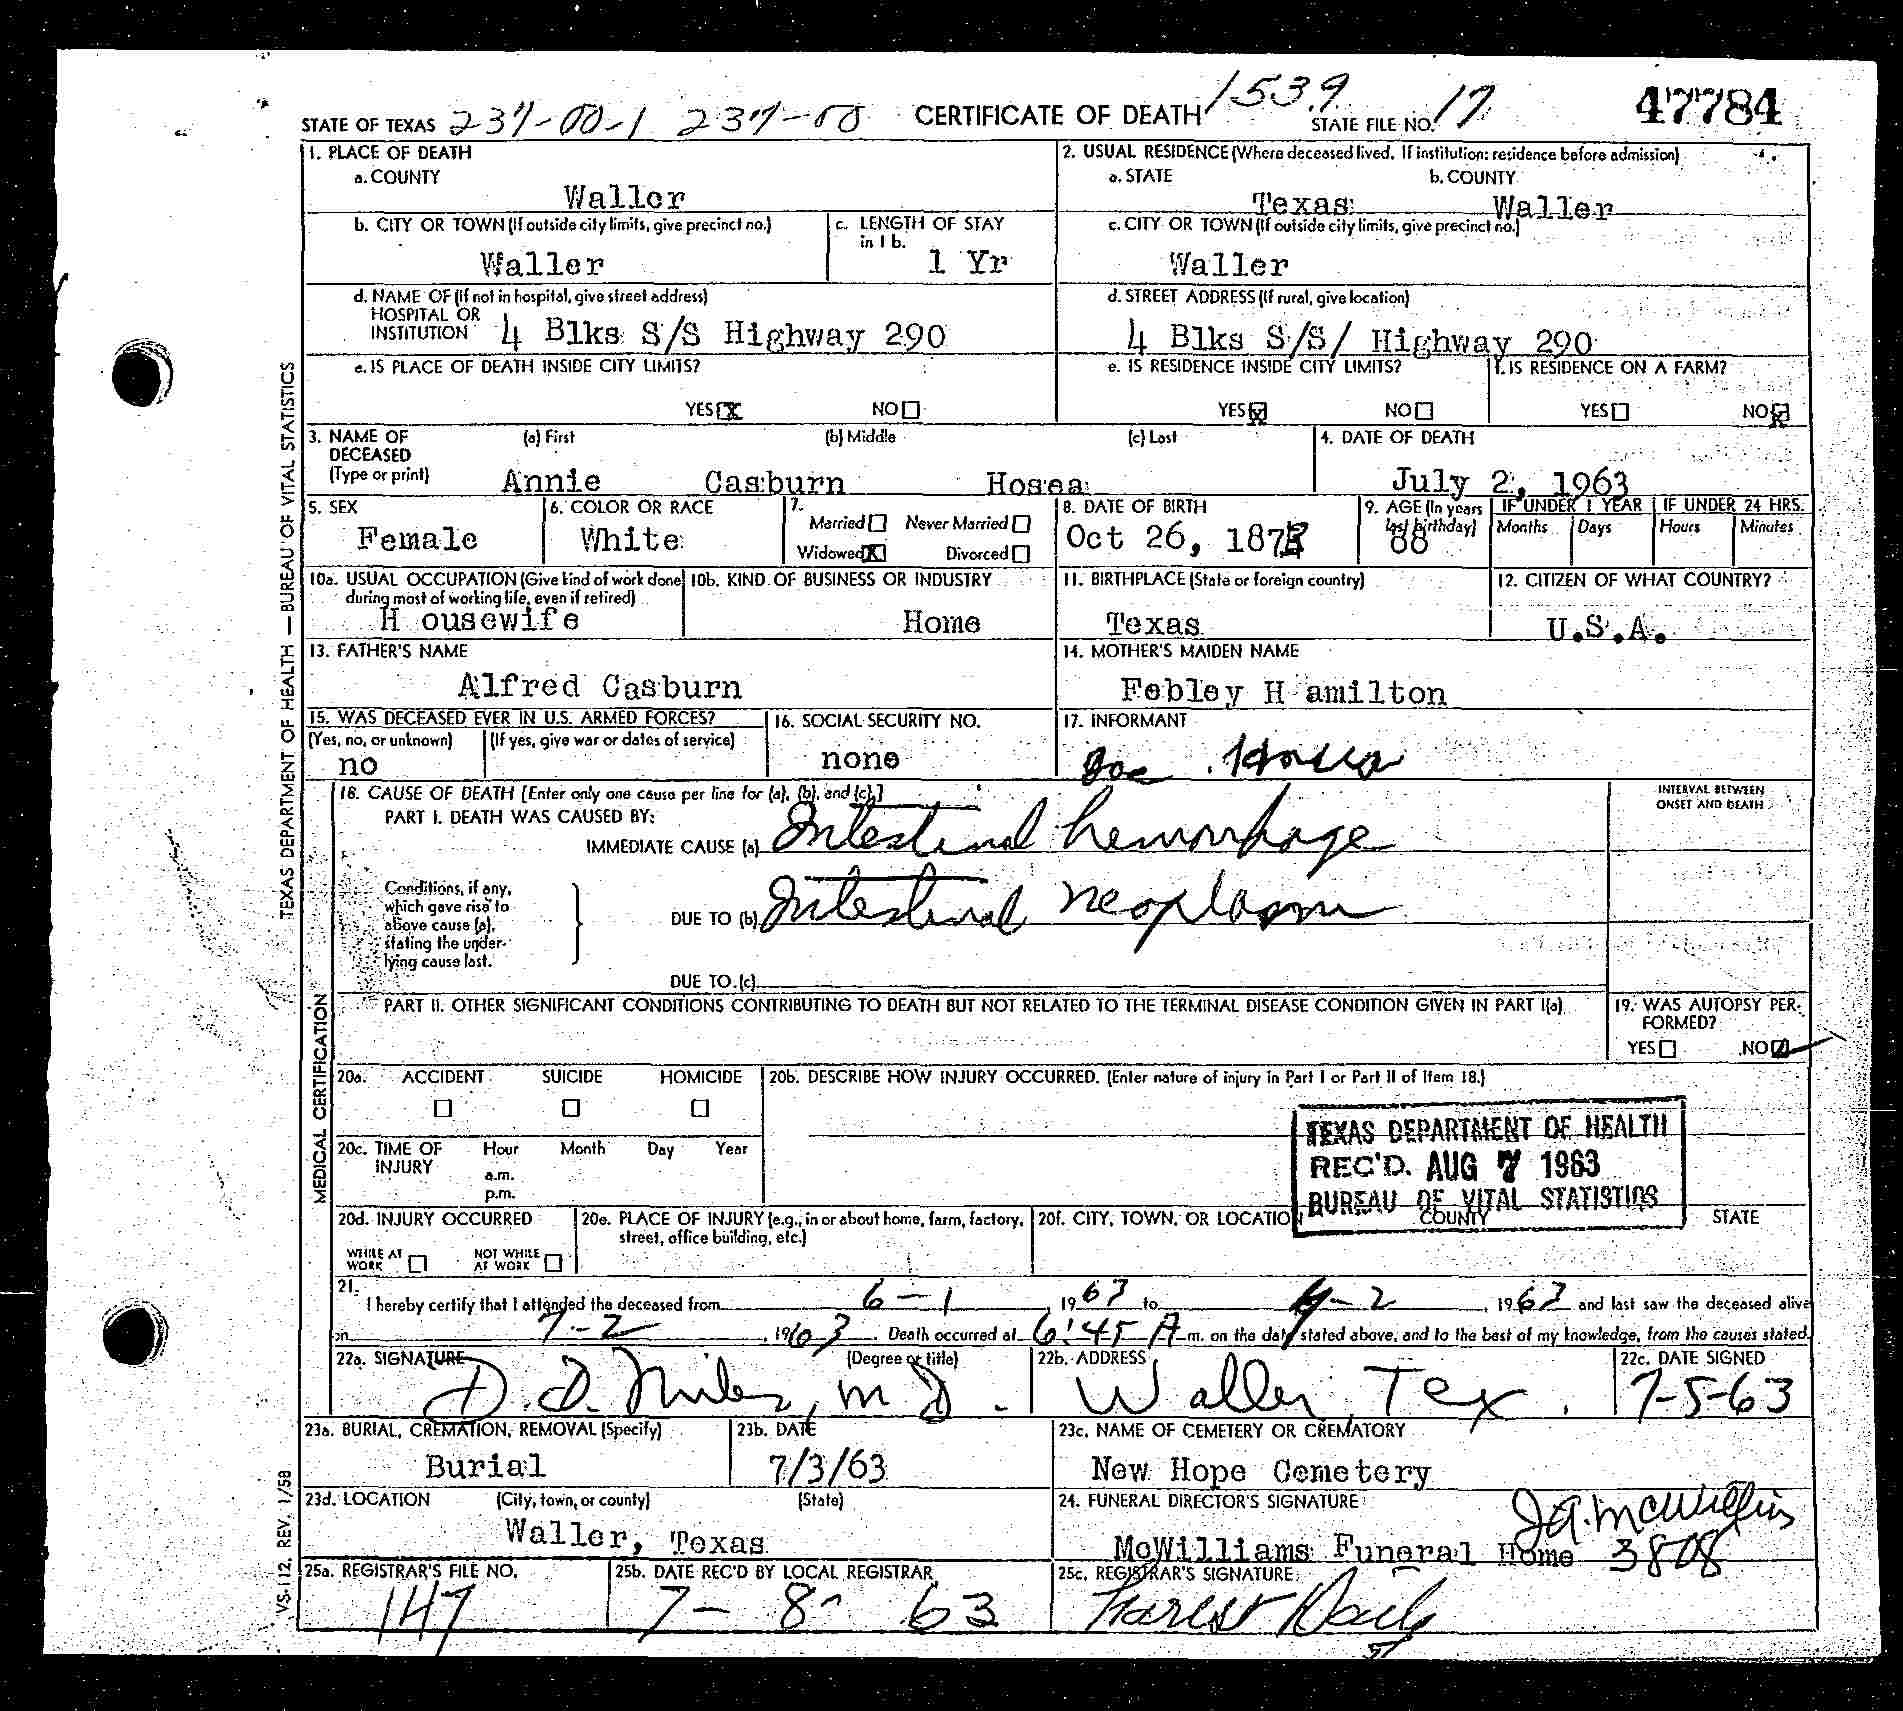 STATE OF TEXAS 237-00-1 237-00 CERTIFICATE OF DEATH 1539 STATE FILE NO. 17 47784
1. PLACE OF DEATH
a. COUNTY
Waller
2. USUAL RESIDENCE (Where deceased lived. If institution: residence before admission)
a. STATE b. COUNTY
Texas Waller
b. CITY OR TOWN (If outside city limits, give precinct no.)
Waller
c. LENGTH OF STAY
in 1 b.
1 Yr
c. CITY OR TOWN (If outside city limits, give precinct no.)
Waller
d. NAME OF (If not in hospital, give street address)
HOSPITAL OR
INSTITUTION 4 Blks S/S Highway 290
d. STREET ADDRESS (If rural, give location)
4 Blks S/S/ Highway 290
e. IS PLACE OF DEATH INSIDE CITY LIMITS?
YES X NO
e. IS RESIDENCE INSIDE CITY LIMITS?
YES X NO
f. IS RESIDENCE ON A FARM?
YES NO X
3. NAME OF
DECEASED
(Type or print)
(a) First (b) Middle (c) Last
Annie Casburn Hosea
4. DATE OF DEATH
July 2, 1963
5. SEX
Female
6. COLOR OR RACE
White
7.
Married Never Married
Widowed X Divorced
8. DATE OF BIRTH
Oct 26, 187
9. AGE (In years
last birthday)
88
IF UNDER 1 YEAR IF UNDER 24 HRS.
Months Days Hours Minutes
10a. USUAL OCCUPATION (Give kind of work done
during most of working life, even if retired)
H ousewife
10b. KIND OF BUSINESS OR INDUSTRY
Home
11. BIRTHPLACE (State or foreign country)
Texas
12. CITIZEN OF WHAT COUNTRY?
U.S.A.
13. FATHER'S NAME
Alfred Casburn
14. MOTHER'S MAIDEN NAME
Febley H amilton
15. WAS DECEASED EVER IN U.S. ARMED FORCES?
(Yes, no, or unknown) (If yes, give war or dates of service)
no
16. SOCIAL SECURITY NO.
none
17. INFORMANT
Joe Hosea
18. CAUSE OF DEATH [Enter only one cause per line for (a), (b), and (c).]
INTERVAL BETWEEN
ONSET AND DEATH
PART I. DEATH WAS CAUSED BY:
IMMEDIATE CAUSE (a) Intestinal hemorrhage
Conditions, if any,
which gave rise to
above cause (a),
stating the under-
lying cause last.
DUE TO (b) Intestinal neoplasm
DUE TO (c)
PART II. OTHER SIGNIFICANT CONDITIONS CONTRIBUTING TO DEATH BUT NOT RELATED TO THE TERMINAL DISEASE CONDITION GIVEN IN PART I(a)
19. WAS AUTOPSY PER-
FORMED?
YES NO
20a. ACCIDENT SUICIDE HOMICIDE
20b. DESCRIBE HOW INJURY OCCURRED. (Enter nature of injury in Part I or Part II of Item 18.)
20c. TIME OF
INJURY
Hour Month Day Year
a.m.
p.m.
TEXAS DEPARTMENT OF HEALTH
REC'D. AUG 7 1963
BUREAU OF VITAL STATISTICS
20d. INJURY OCCURRED
WHILE AT
WORK
NOT WHILE
AT WORK
20e. PLACE OF INJURY (e.g., in or about home, farm, factory,
street, office building, etc.)
20f. CITY, TOWN, OR LOCATION COUNTY STATE
21.
I hereby certify that I attended the deceased from 6-1, 1963 to 7-2, 1963 and last saw the deceased alive
on 7-2, 1963. Death occurred at 6:45 A m. on the date stated above, and to the best of my knowledge, from the causes stated.
22a. SIGNATURE (Degree or title)
D. D. Niles, M D.
22b. ADDRESS
Waller, Tex.
22c. DATE SIGNED
7-5-63
23a. BURIAL, CREMATION, REMOVAL (Specify)
Burial
23b. DATE
7/3/63
23c. NAME OF CEMETERY OR CREMATORY
New Hope Cemetery
23d. LOCATION (City, town, or county) (State)
Waller, Texas
24. FUNERAL DIRECTOR'S SIGNATURE
J.A. McWilliams
McWilliams Funeral Home 3808
25a. REGISTRAR'S FILE NO.
147
25b. DATE REC'D BY LOCAL REGISTRAR
7-8-63
25c. REGISTRAR'S SIGNATURE
TEXAS DEPARTMENT OF HEALTH — BUREAU OF VITAL STATISTICS
MEDICAL CERTIFICATION
VS-112, REV. 1/58